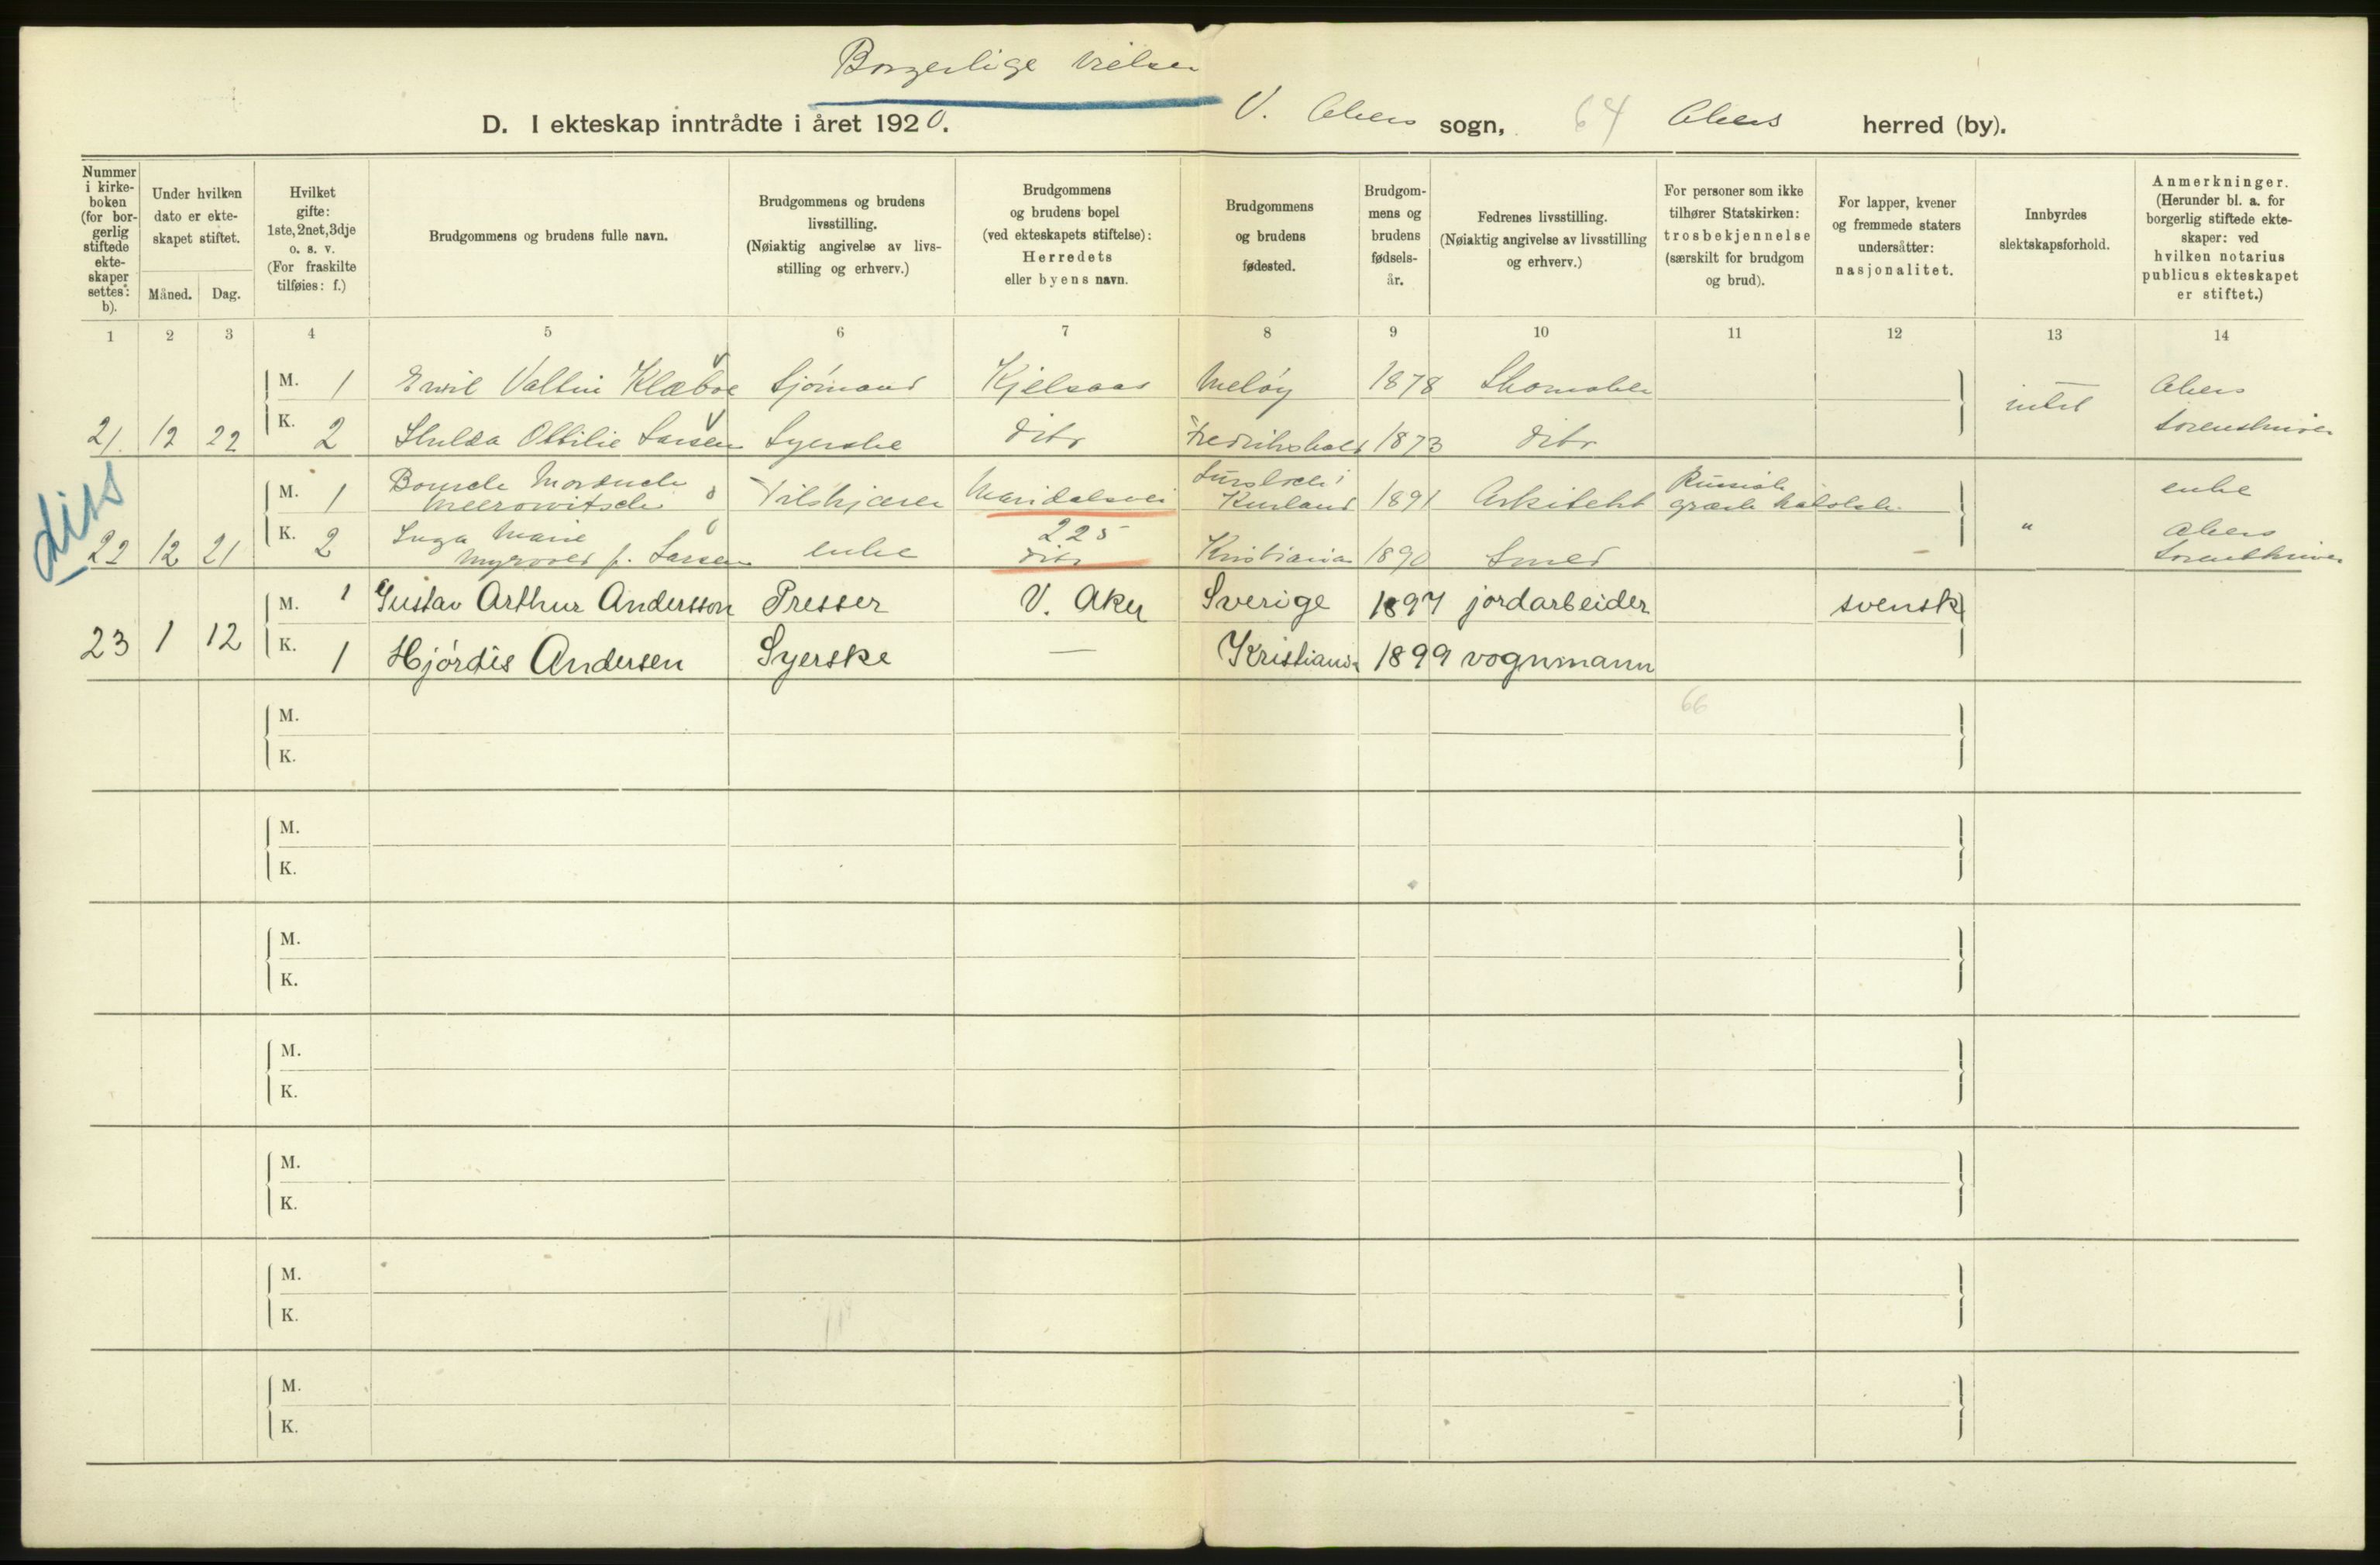 Borgerlige vielser
D. I ekteskap inntrådte i året 1920.
V. Akers sogn, 64 Akers herred (by).
Nummer i kirke-boken (for bor-gerlig stiftede ekte-skaper settes: b).
Under hvilken dato er ekte-skapet stiftet.
Måned. Dag.
Hvilket gifte: 1ste, 2net, 3dje o. s. v. (For fraskilte tilføies: f.)
Brudgommens og brudens fulle navn.
Brudgommens og brudens livsstilling. (Nøiaktig angivelse av livs-stilling og erhverv.)
Brudgommens og brudens bopel (ved ekteskapets stiftelse): Herredets eller byens navn.
Brudgommens og brudens fødested.
Brudgom-mens og brudens fødsels-år.
Fedrenes livsstilling. (Nøiaktig angivelse av livsstilling og erhverv.)
For personer som ikke tilhører Statskirken: trosbekjennelse (særskilt for brudgom og brud).
For lapper, kvener og fremmede staters undersåtter: nasjonalitet.
Innbyrdes slektskapsforhold.
Anmerkninger. (Herunder bl. a. for borgerlig stiftede ekte-skaper: ved hvilken notarius publicus ekteskapet er stiftet.)
1 2 3 4 5 6 7 8 9 10 11 12 13 14
M. 1 Emil Valtin Klæboe Sjømand Kjelsaas Meløy 1878 Skomaker intet Akers
21 12 22 K. 2 Ottilie Larsen Syerske dito Fredrikshald 1873 dito Sorenskriver
diss
M. 1 Meerowitsch Maridalsvei Kurland 1891 Arkitekt Russisk græsk katolsk enke
22 12 21 K. 2 Inga Marie Myrvold f. Larsen enke 225 dito Kristiania 1890 Smed " Akers Sorenskriver
M. 1 Gustav Arthur Andersson Presser V. Aker Sverige 1897 jordarbeider svensk
23 1 12 K. 1 Hjórdis Andersen Syerske — Kristiania 1899 vognmann
66
M.
K.
M.
K.
M.
K.
M.
K.
M.
K.
M.
K.
M.
K.